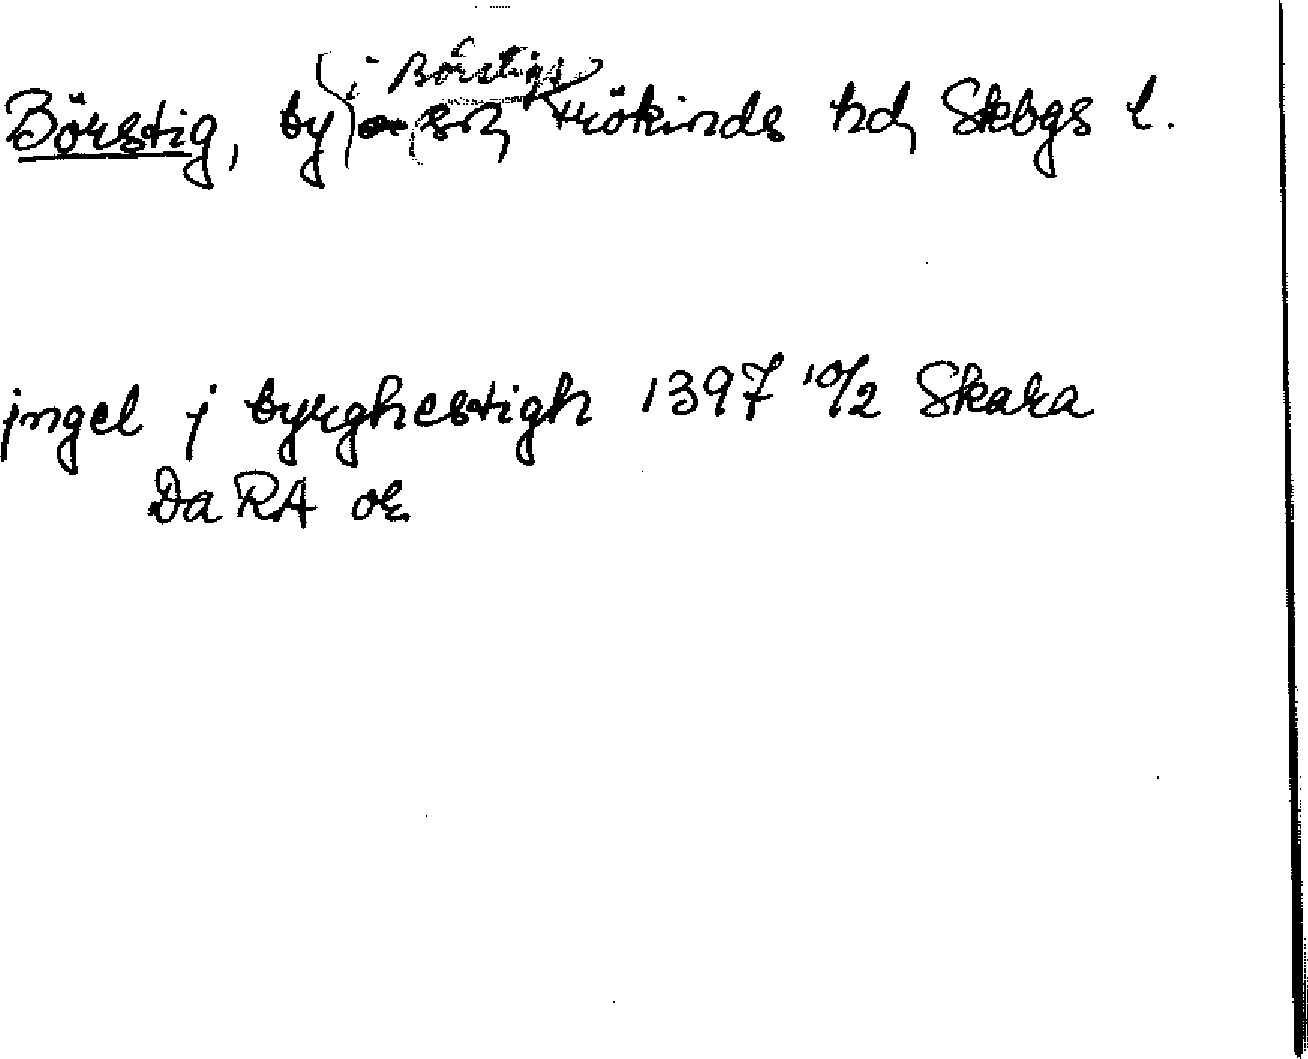 i Börstigs
Börstig, by sn, Frökinds hd, Skbgs l.
jngel j byrghestigh 1397 10/2 Skara
Da RA or.